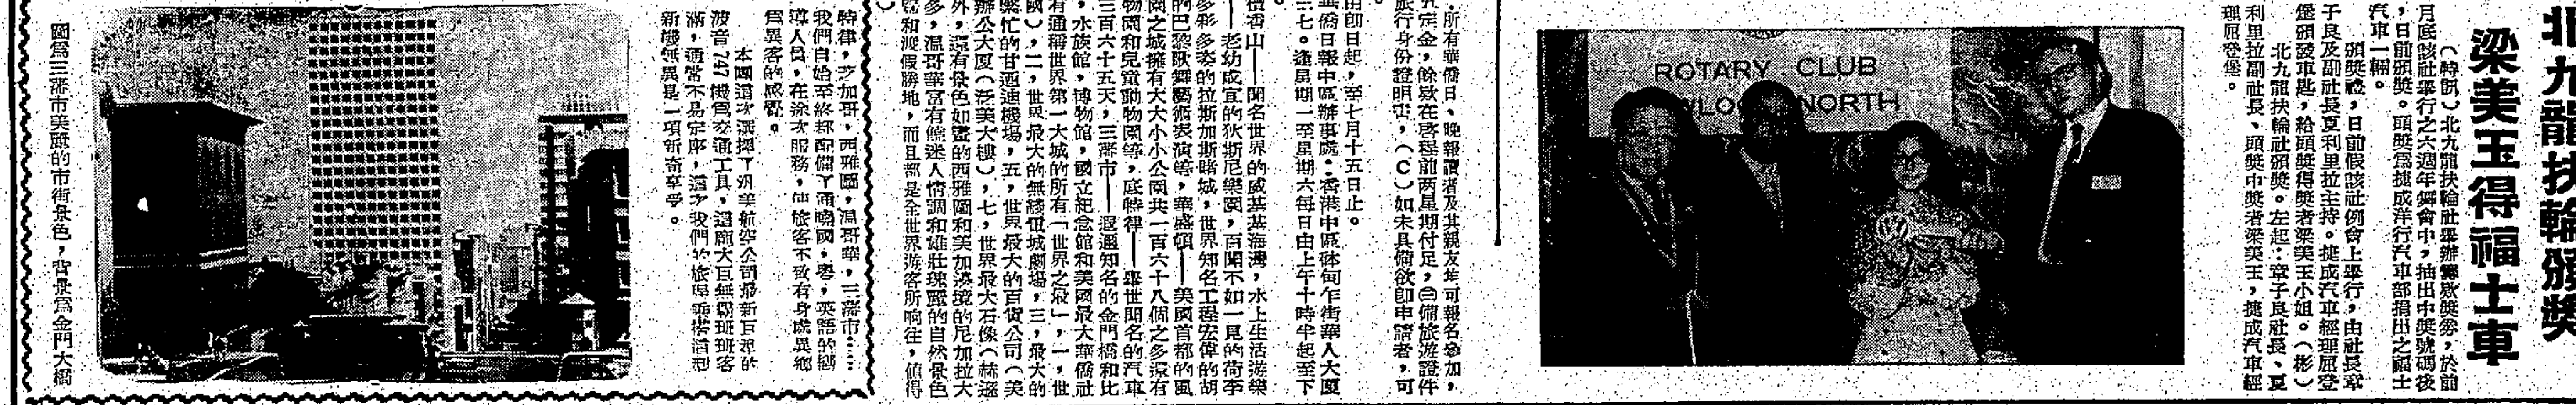 北九龍扶輪頒獎
梁美玉得福士車
（特訊）北九龍扶輪社舉辦籌欵獎劵，於前
月底該社舉行之六週年舞會中，抽出中獎號碼後
，日前頒獎。頭獎爲捷成洋行汽車部捐出之福士
汽車一輛。
頒獎禮，日前假該社例會上舉行，由社長章
子良及副社長夏利里拉主持。捷成汽車經理屈登
堡頒發車匙，給頭獎得獎者梁美玉小姐。（彬）
北九龍扶輪社頒獎。左起：章子良社長、夏
利里拉副社長、頭獎中獎者梁美玉，捷成汽車經
理屈登堡。
ROTARY CLUB
NORTH
，所有華僑日、晚報讀者及其親友均可報名參加，
定金，餘欵在啓程前两星期付足，㊂備旅遊證件
旅行身份證明書，（C）如未具備欲卽申請者，可
由卽日起，至七月十五日止。
華僑日報中區辦事處：香港中區砵甸乍街華人大廈
三七。逢星期一至星期六每日由上午十時半起至下
檀香山——聞名世界的威基基海灘，水上生活游樂
——老幼咸宜的狄斯尼樂園，百聞不如一見的荷李
多彩多姿的拉斯加斯賭城，世界知名工程宏偉的胡
的巴黎歌舞藝術表演等，華盛頓——美國首都的風
園之城擁有大大小小公園共一百六十八個之多還有
物園和兒童動物園等，底特律——舉世聞名的汽車
三百六十五天，三藩市——遐邇知名的金門橋和比
，水族館，博物館，國立紀念館和美國最大華僑社
有通稱世界第一大城的所有「世界之最」，一，世
國），二，世界最大的無綫電城劇場，三，最大的
繁忙的甘迺迪機塲，五，世界最大的百貨公司（美
辦公大廈（泛美大樓），七，世界最大石像（赫遜
外，還有景色如畫的西雅圖和美加邊境的尼加拉大
多，温哥華富有能迷人情調和雄壯瑰麗的自然景色
和渡假勝地，而且都是全世界游客所响往，値得
特律，芝加哥，西雅圖，温哥華，三藩市……
我們自始至終都配備了通曉國，粵，英語的嚮
導人員，在旅次服務，使旅客不致有身處異鄉
爲異客的感覺。
本團這次選擇了汎美航空公司最新巨型的
波音747機爲交通工具，這龐大巨無霸班班客
滿，通常不易定座，這次我們的旅程乘搭這型
新機無異是一項新奇享受。
圖爲三藩市美麗的市街景色，背景爲金門大橋